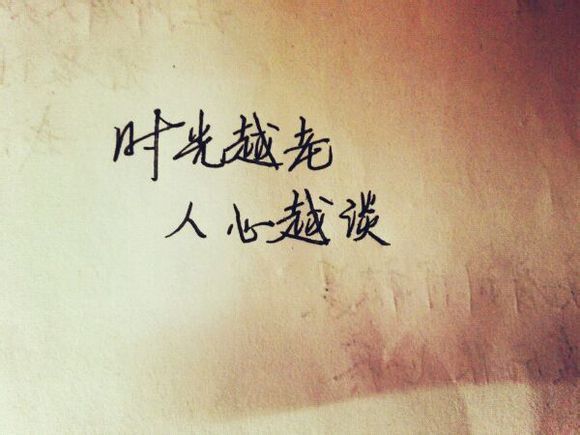 时光越老
人心越谈